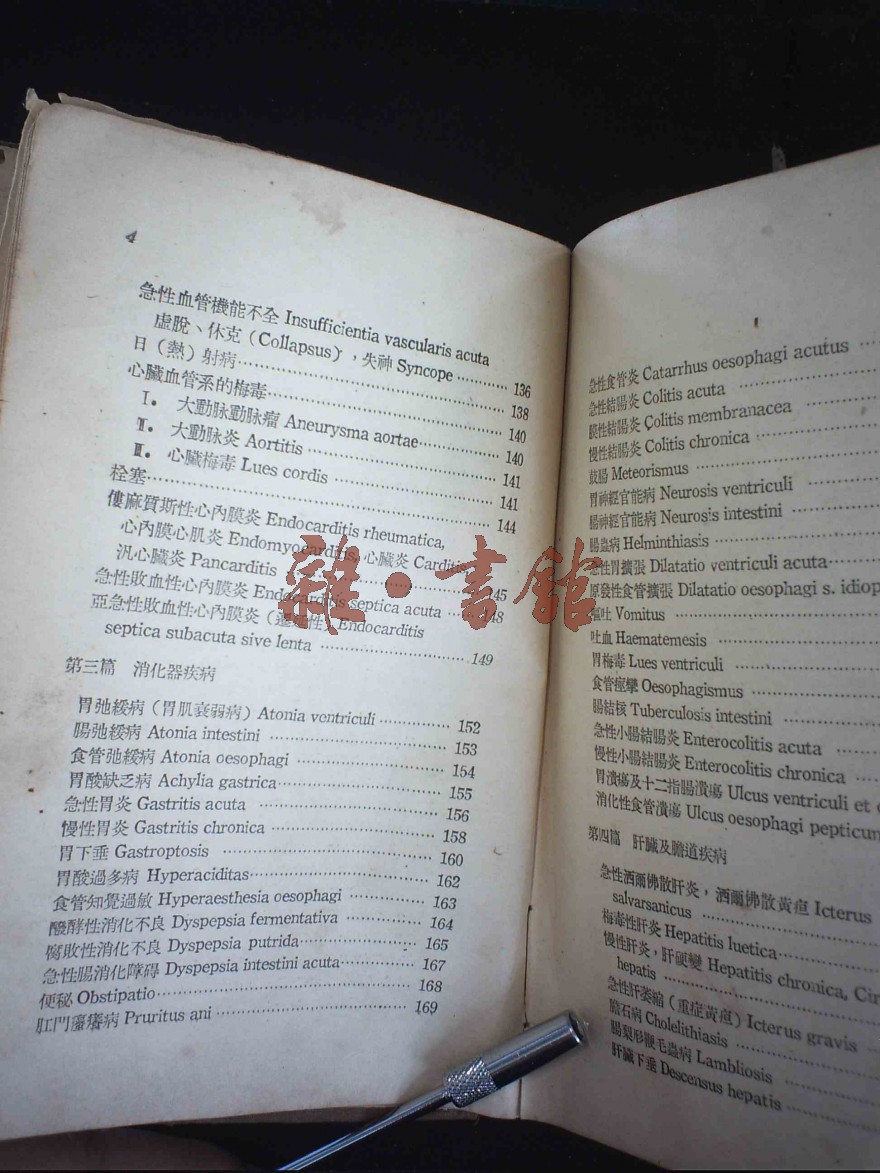 4
急性血管機能不全 Insufficientia vascularis acuta
虛脫、休克 (Collapsus), 失神 Syncope ………… 136
日（熱）射病……………… 138
心臟血管系的梅毒……………… 140
Ⅰ. 大動脉動脉瘤 Aneurysma aortae……………… 140
Ⅱ. 大動脉炎 Aortitis ……………… 141
Ⅲ. 心臟梅毒 Lues cordis ……………… 141
栓塞……………… 144
僂麻質斯性心內膜炎 Endocarditis rheumatica,
心內膜心肌炎 Endomyocarditis, 心臟炎 Carditis
汎心臟炎 Pancarditis ……………… 145
急性敗血性心內膜炎 Endocarditis septica acuta …… 148
亞急性敗血性心內膜炎（遷延性）Endocarditis
septica subacuta sive lenta ……………… 149
第三篇 消化器疾病
胃弛緩病（胃肌衰弱病）Atonia ventriculi ………… 152
腸弛緩病 Atonia intestini ……………… 153
食管弛緩病 Atonia oesophagi ……………… 154
胃酸缺乏病 Achylia gastrica……………… 155
急性胃炎 Gastritis acuta ……………… 156
慢性胃炎 Gastritis chronica ……………… 158
胃下垂 Gastroptosis ……………… 160
胃酸過多病 Hyperaciditas……………… 162
食管知覺過敏 Hyperaesthesia oesophagi ………… 163
醱酵性消化不良 Dyspepsia fermentativa ………… 164
腐敗性消化不良 Dyspepsia putrida……………… 165
急性腸消化障碍 Dyspepsia intestini acuta………… 167
便秘 Obstipatio……………… 168
肛門瘙癢病 Pruritus ani ……………… 169
急性食管炎 Catarrhus oesophagi acutus …
急性結腸炎 Colitis acuta ………
膜性結腸炎 Colitis membranacea ………
慢性結腸炎 Colitis chronica ………
鼓腸 Meteorismus ………
胃神經官能病 Neurosis ventriculi ………
腸神經官能病 Neurosis intestini ………
腸蟲病 Helminthiasis ………
急性胃擴張 Dilatatio ventriculi acuta………
原發性食管擴張 Dilatatio oesophagi s. idiop
嘔吐 Vomitus ………
吐血 Haematemesis ………
胃梅毒 Lues ventriculi ………
食管痙攣 Oesophagismus ………
腸結核 Tuberculosis intestini ………
急性小腸結腸炎 Enterocolitis acuta ………
慢性小腸結腸炎 Enterocolitis chronica ………
胃潰瘍及十二指腸潰瘍 Ulcus ventriculi et
消化性食管潰瘍 Ulcus oesophagi pepticum
第四篇 肝臟及膽道疾病
急性洒爾佛散肝炎，洒爾佛散黃疸 Icterus
salvarsanicus ………
梅毒性肝炎 Hepatitis luetica………
慢性肝炎，肝硬變 Hepatitis chronica, Cir
hepatis ………
急性肝萎縮（重症黃疸）Icterus gravis ………
膽石病 Cholelithiasis ………
腸梨形鞭毛蟲病 Lambliosis ………
肝臟下垂 Descensus hepatis ………
雜·書館